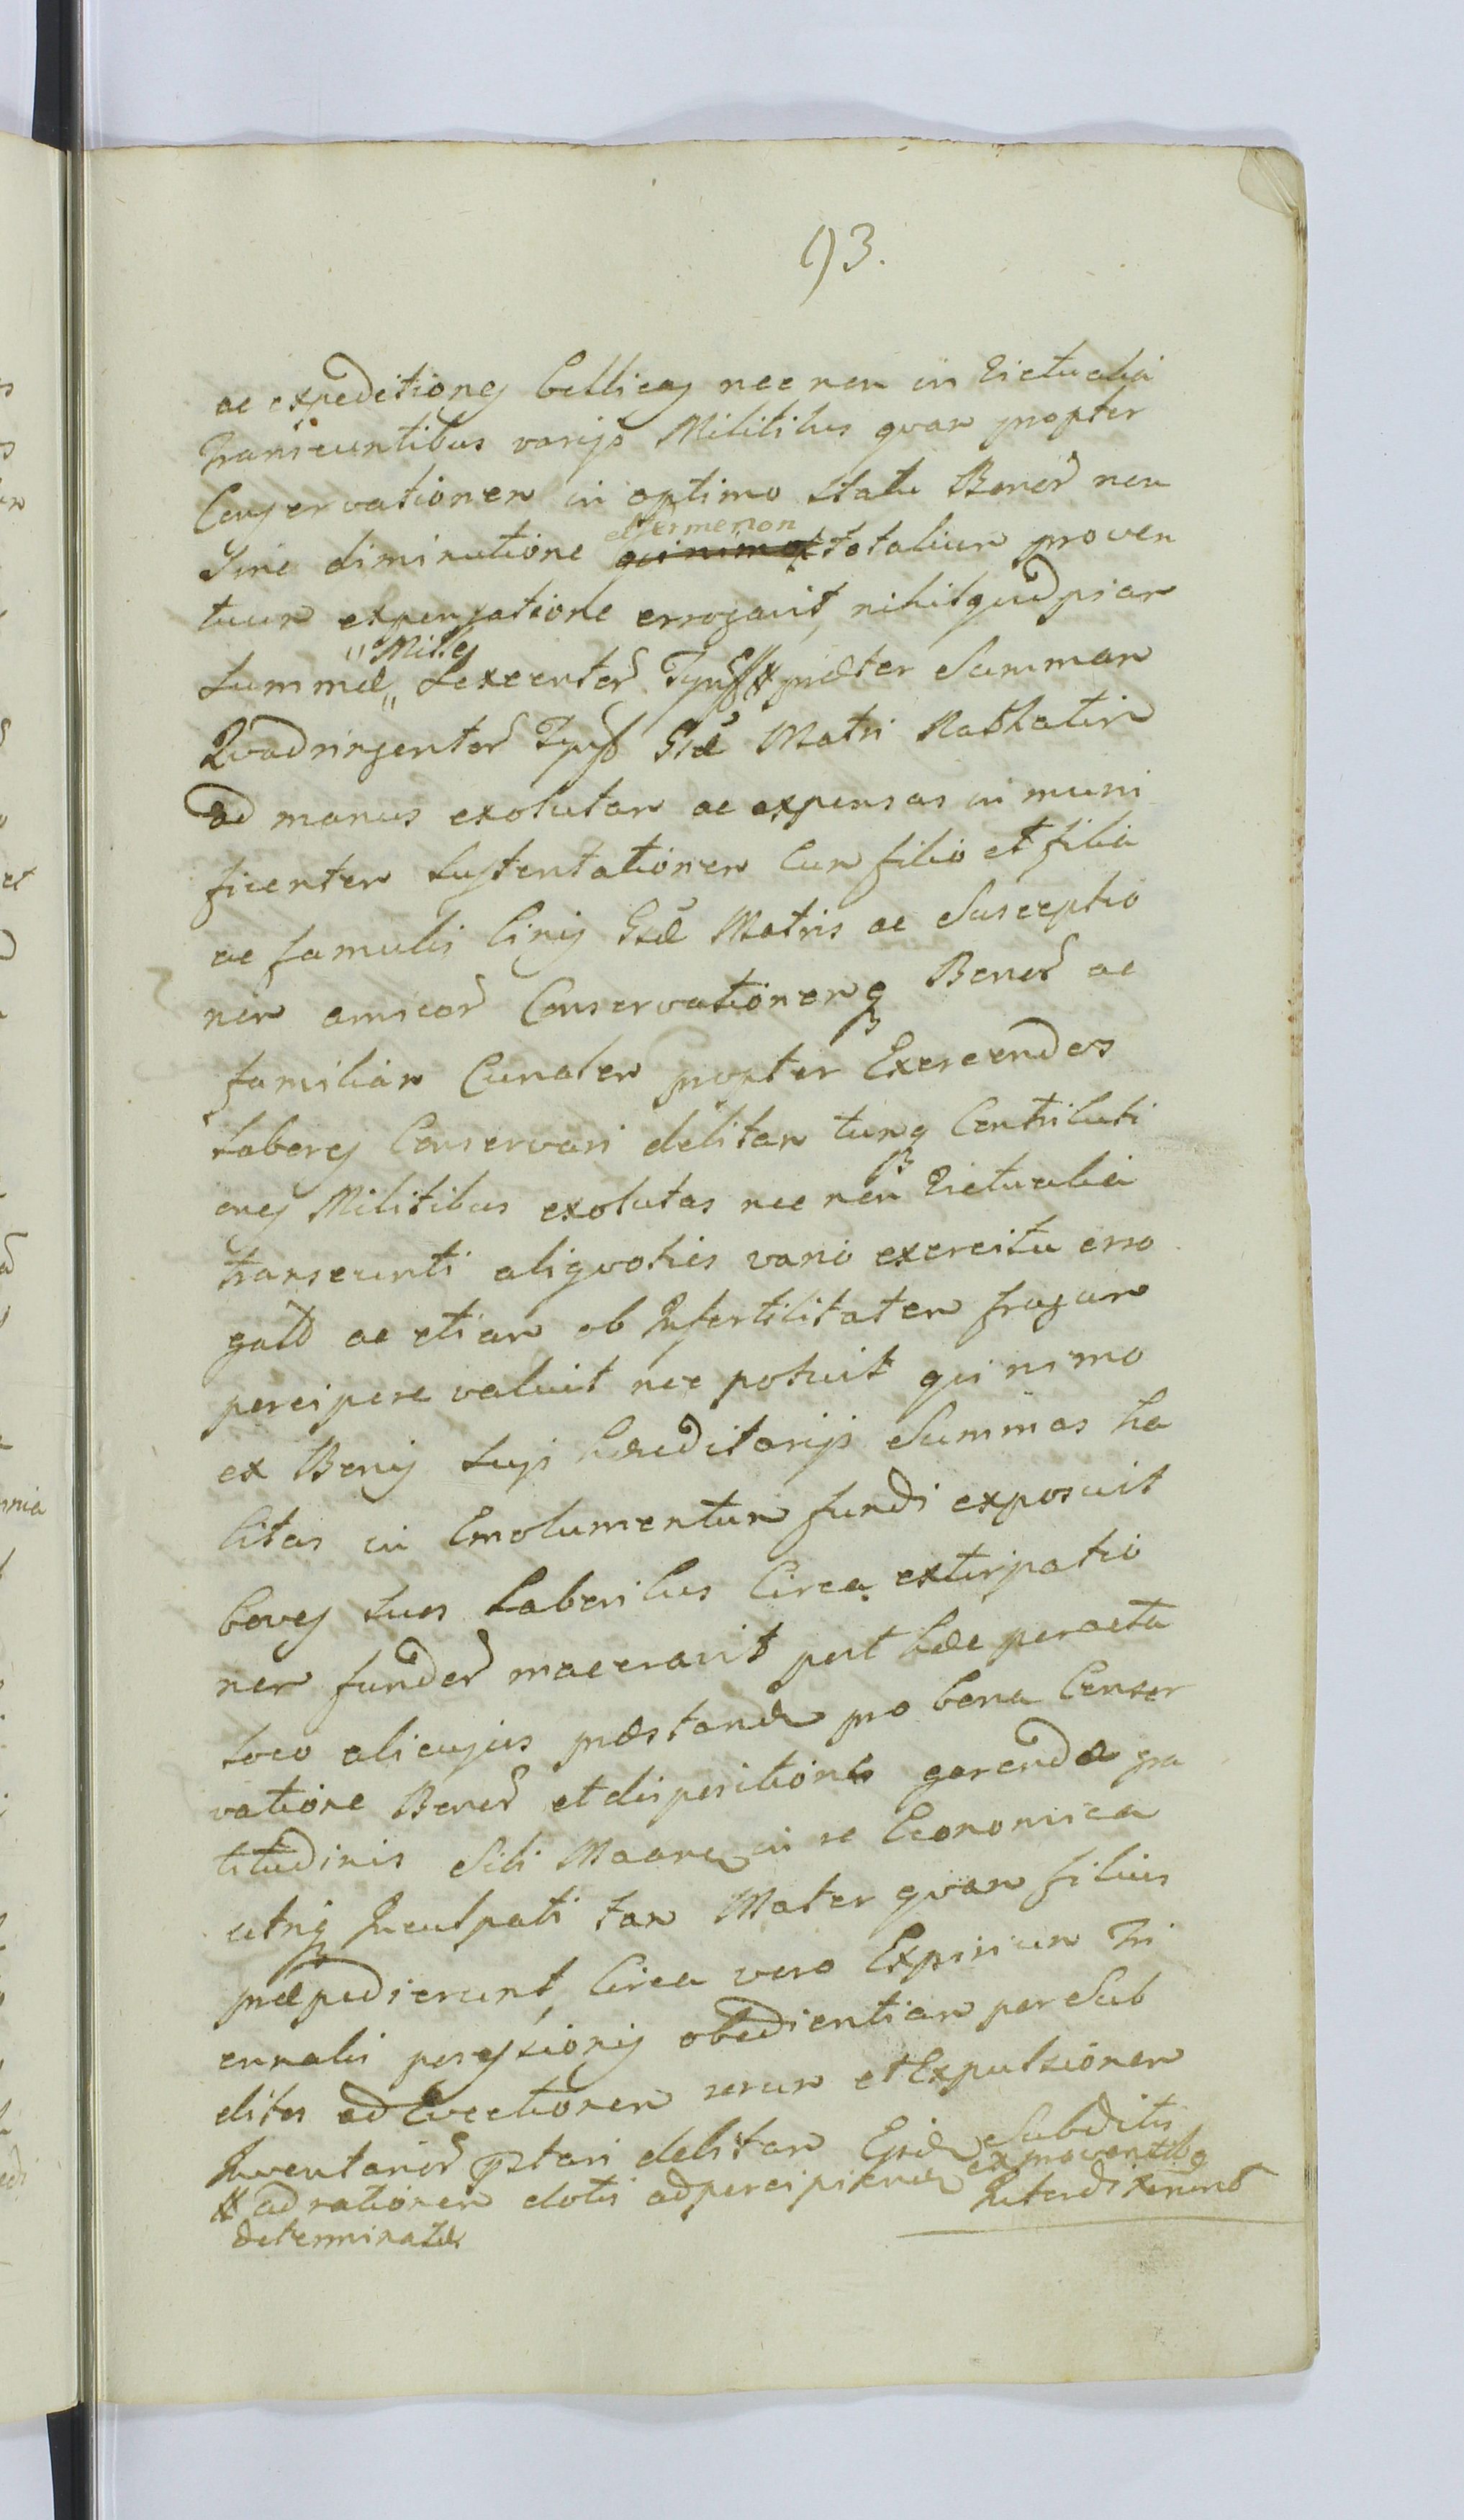 93.
ac expeditiones bellicas nec non in Victualia
Transeuntibus varijs Militibus quam propter
Conservationem in optimo statu Bonor non
sine diminutione et ferme non quinimo totalium proven
tuum expensatione errogavit, nihilquepiam
summae „Mille„ Sexcentor Tynff # praeter Summam
Quadringentor Tynf Gsae Matri Rabhatin
ad manus exolutam ac expensas in muni
ficentem sustentationem cum filio et filia
ac famulis binis Gsae Matris ac Susceptio
nem amicor Conservationemq Bonor ac
familiam Curalem propter Exercendos
labores Conservari debitam tumq Contributi
ones Militibus exolutas nec non Victualia
transeunti aliquoties vario exercitu erro
gato ac etiam ob Infertilitatem frugum
percipere valuit nec potuit quinimo
ex Bonis suis haereditarijs Summas ha
bitas in Emolumentum fundi exposuit
boves suos laboribus circa extirpatio
nem fundor maceravit post haec peracta
loco alicujus praestandae pro bona Conser
vatione Bonor et dispositionis gerendae gra
titudinis Sibi in re Economica
utriq Inculpati tam Mater quam filius
praepedierunt, Circa vero Expirium Tri
ennalis possessionis obedientiam per Sub
ditos ad Evectionem rerum et Expulsionem
Inventarior pstari debitam Gsae Subditis
Interdixerunt
# ad rationem dotis ad percipiendae ex proventibq
determinatae